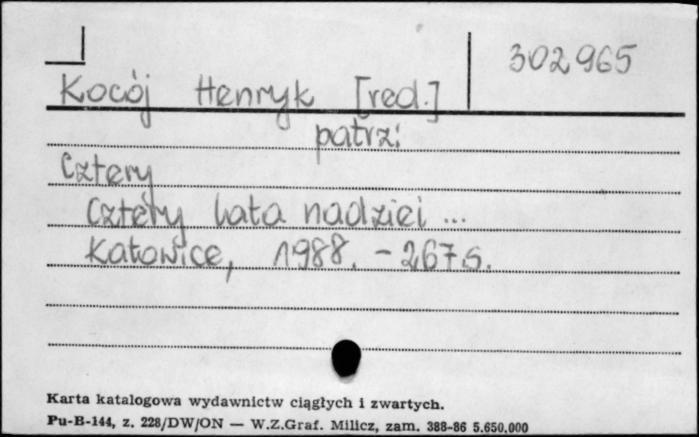 302965
Kocój Henryk [red.]
patrz:
Cztery
Cztery lata nadziei ...
Katowice, 1988. - 267 s.
Karta katalogowa wydawnictw ciągłych i zwartych.
Pu-B-144, z. 228/DW/ON — W.Z.Graf. Milicz, zam. 388-86 5.650.000